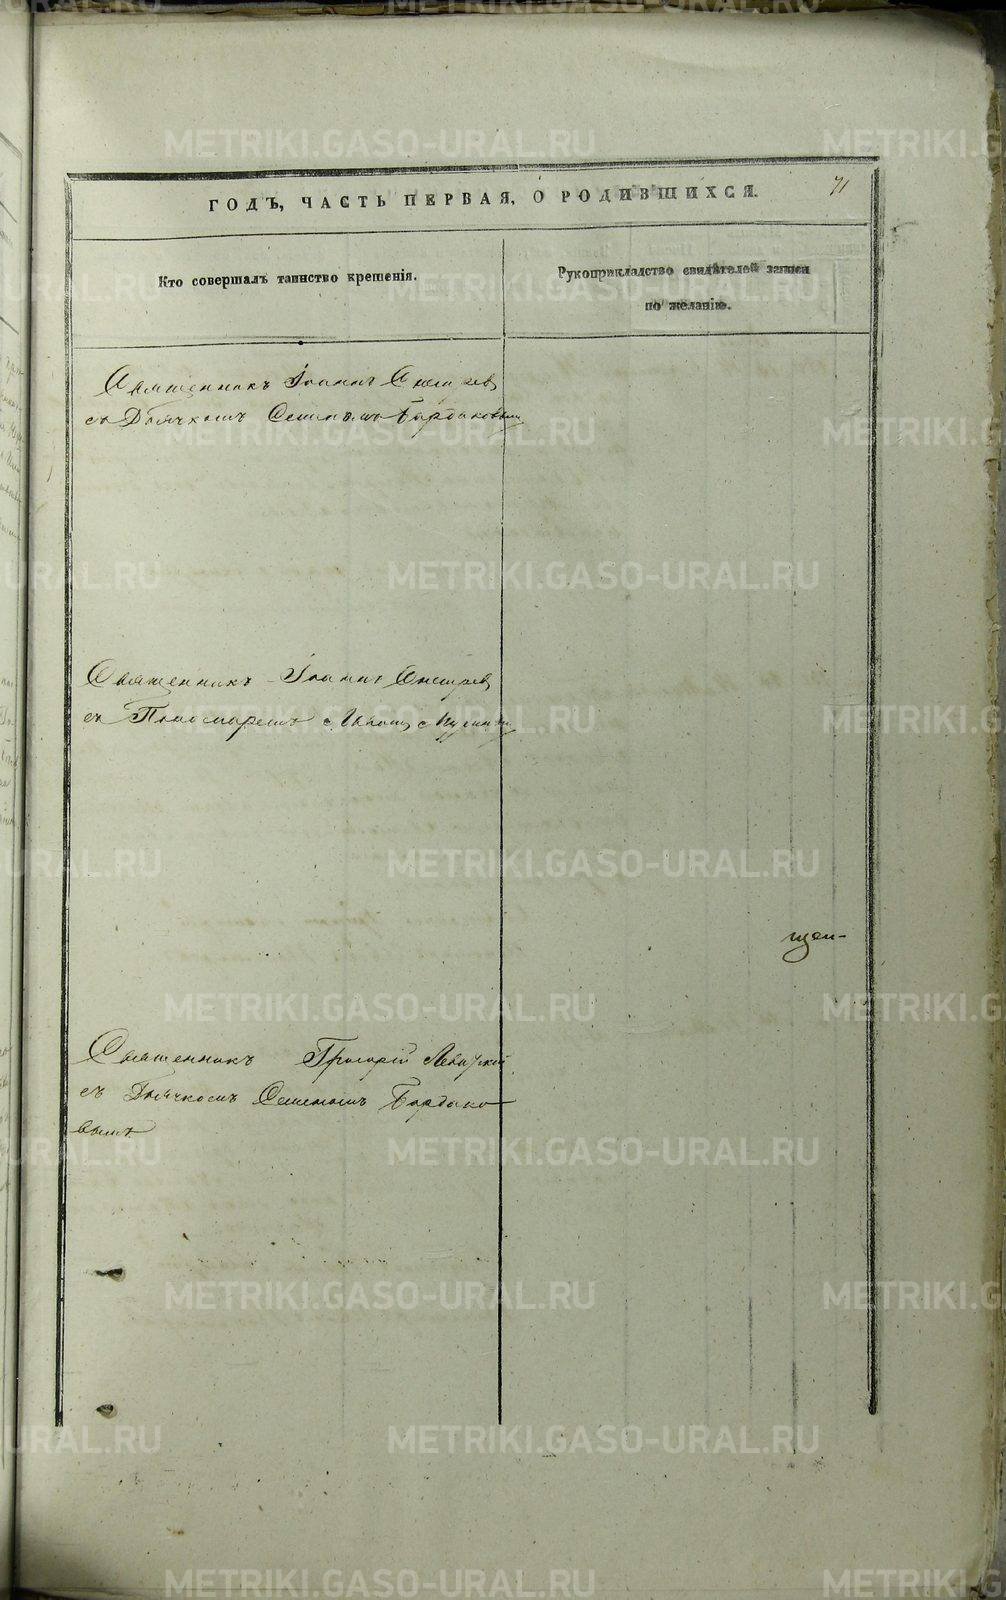 71
ГОДЪ, ЧАСТЬ ПЕРВАЯ, О РОДИВШИХСЯ.
Кто совершалъ таинство крещенія.
Рукоприкладство свидѣтелей записи
по желанію.
Священникъ Іоаннъ
съ Дьячкомъ Семеномъ Бардаковымъ
Священникъ Іоаннъ
съ Пономаремъ
Священникъ Григорій Левицкій
съ Дьячкомъ Семеномъ Бардако
вымъ
METRIKI.GASO-URAL.RU